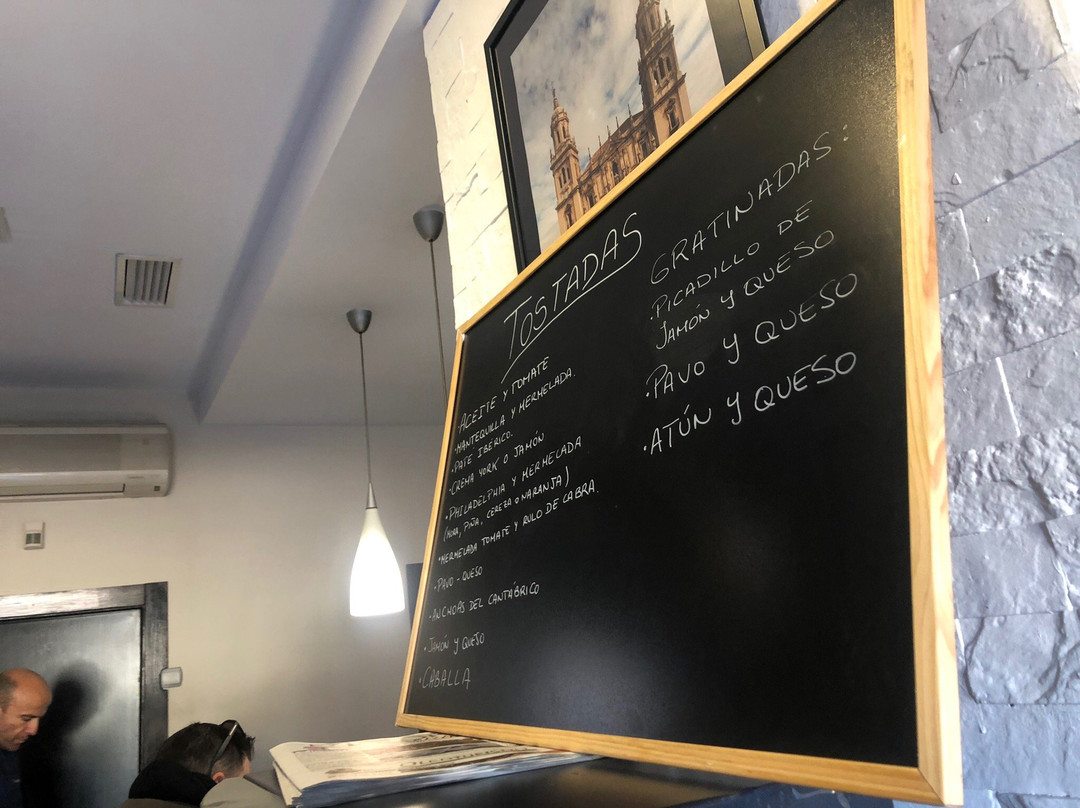 TOSTADAS
ACEITE Y TOMATE
·MANTEQUILLA Y MERMELADA.
·PATÉ IBÉRICO.
·CREMA YORK O JAMÓN
·PHILADELPHIA Y MERMELADA
(MORA, PIÑA, CEREZA O NARANJA)
·MERMELADA TOMATE Y RULO DE CABRA.
·PAVO - QUESO
·ANCHOAS DEL CANTÁBRICO
·JAMÓN Y QUESO
·CABALLA
GRATINADAS:
·PICADILLO DE
JAMÓN Y QUESO
·PAVO Y QUESO
·ATÚN Y QUESO